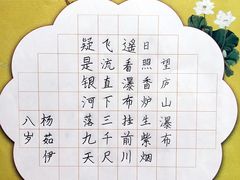 望庐山瀑布
日照香炉生紫烟
遥看瀑布挂前川
飞流直下三千尺
疑是银河落九天
杨茹伊
八岁